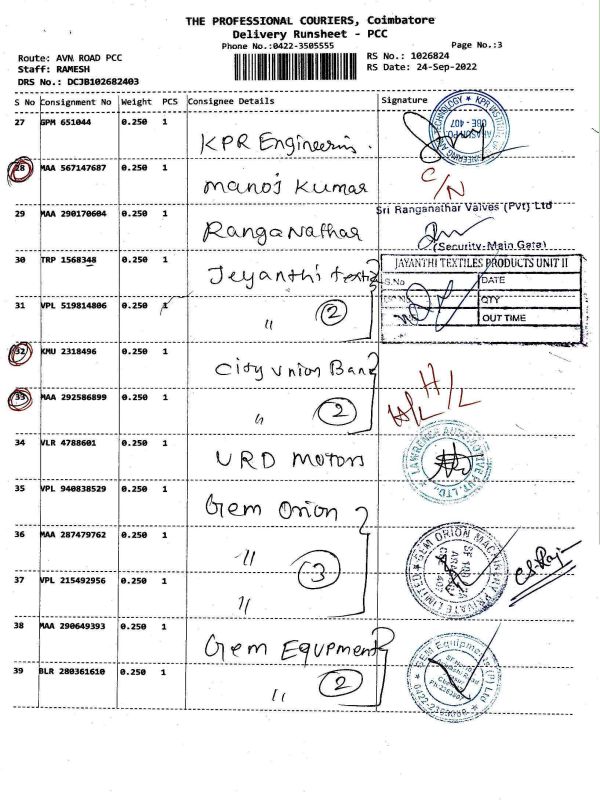 THE PROFESSIONAL COURIERS, Coimbatore
Delivery Runsheet - PCC
Phone No.:0422-3505555
Page No.:3
Route: AVN ROAD PCC
RS No.: 1026824
Staff: RAMESH
RS Date: 24-Sep-2022
DRS No.: DCJB102682403
S No Consignment No Weight PCS Consignee Details Signature
27 GPM 651044 0.250 1 KPR Engineering.
28 MAA 567147687 0.250 1 Manoj Kumar C/N
29 MAA 290170604 0.250 1 Ranganathar
Sri Ranganathar Valves (Pvt) Ltd
(Security-Main Gate)
30 TRP 1568348 0.250 1 Jeyanthi Textiz
JAYANTHI TEXTILES PRODUCTS UNIT II
S.No DATE
31 VPL 519814806 0.250 1 " 2
QTY
OUT TIME
32 KMU 2318496 0.250 1 City Union Bank
33 MAA 292586899 0.250 1 " 2
H/L
34 VLR 4788601 0.250 1 URD Motors
LAWRENCE AUTOMOTIVE PVT. LTD.,
35 VPL 940838529 0.250 1 Gem Orion
36 MAA 287479762 0.250 1 "
GEM ORION MACHINERY PRIVATE LIMITED
37 VPL 215492956 0.250 1 " 3
38 MAA 290649393 0.250 1 Gem Equpment
GEM Equipments (P) Ltd
39 BLR 280361610 0.250 1 " 2